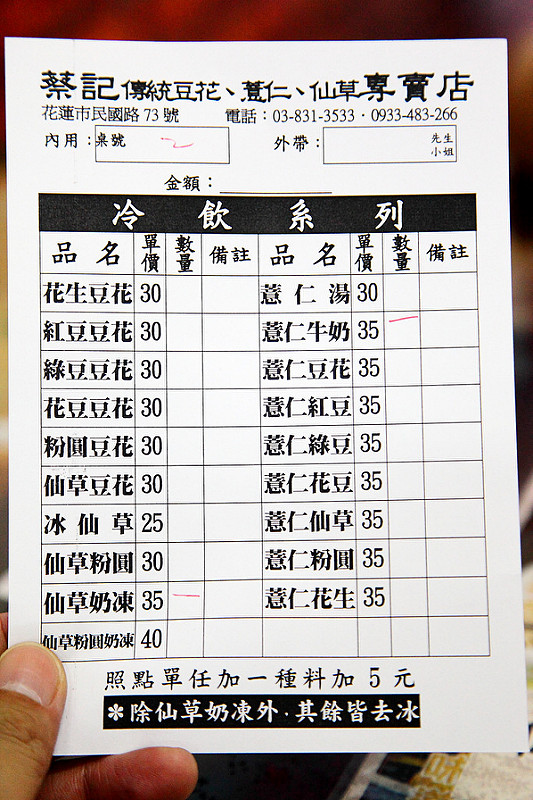 蔡記傳統豆花、薏仁、仙草專賣店
花蓮市民國路 73 號 電話：03-831-3533·0933-483-266
內用：桌號 外帶： 先生 小姐
金額：
冷飲系列
品名 單價 數量 備註 品名 單價 數量 備註
花生豆花 30 薏仁湯 30
紅豆豆花 30 薏仁牛奶 35 一
綠豆豆花 30 薏仁豆花 35
花豆豆花 30 薏仁紅豆 35
粉圓豆花 30 薏仁綠豆 35
仙草豆花 30 薏仁花豆 35
冰仙草 25 薏仁仙草 35
仙草粉圓 30 薏仁粉圓 35
仙草奶凍 35 一 薏仁花生 35
仙草粉圓奶凍 40
照點單任加一種料加 5 元
✻除仙草奶凍外·其餘皆去冰